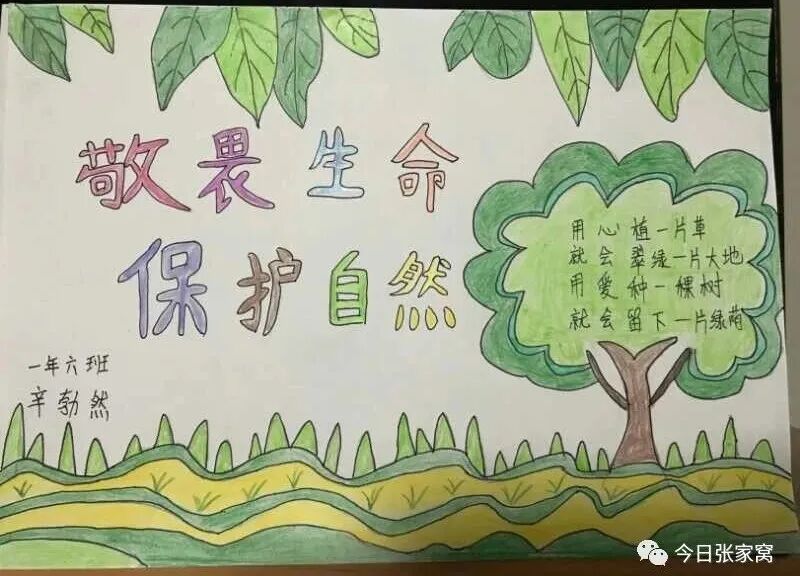 敬畏生命
保护自然
用心植一片草
就会翠绿一片大地
用爱种一棵树
就会留下一片绿荫
一年六班
辛勃然
今日张家窝